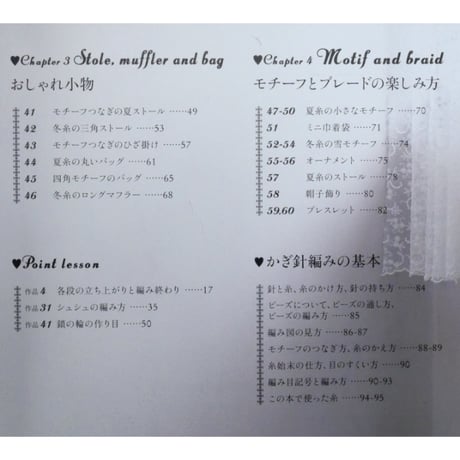 ♥Chapter 3 Stole, muffler and bag
おしゃれ小物
41 モチーフつなぎの夏ストール ……49
42 冬糸の三角ストール ……53
43 モチーフつなぎのひざ掛け ……57
44 夏糸の丸いバッグ ……61
45 四角モチーフのバッグ ……65
46 冬糸のロングマフラー ……68
♥Point lesson
作品4 各段の立ち上がりと編み終わり ……17
作品31 シュシュの編み方 ……35
作品41 鎖の輪の作り目 ……50
♥Chapter 4 Motif and braid
モチーフとブレードの楽しみ方
47-50 夏糸の小さなモチーフ ……70
51 ミニ巾着袋 ……71
52-54 冬糸の雪モチーフ ……74
55-56 オーナメント ……75
57 夏糸のストール ……78
58 帽子飾り ……80
59.60 ブレスレット ……82
♥かぎ針編みの基本
針と糸、糸のかけ方、針の持ち方 ……84
ビーズについて、ビーズの通し方、
ビーズの編み方 ……85
編み図の見方 ……86-87
モチーフのつなぎ方、糸のかえ方 ……88-89
糸始末の仕方、目のすくい方 ……90
編み目記号と編み方 ……90-93
この本で使った糸 ……94-95